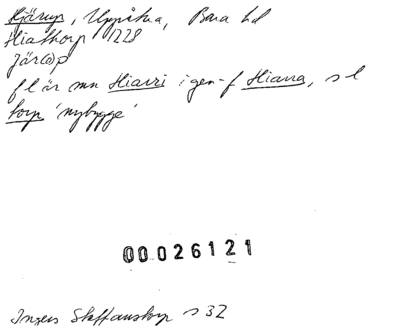 Hjärup, Uppåkra, Bara hd
Hiathorp 1228
jär(ə)p
f l är mn Hiarri i gen-f Hiarra, s l
torp 'nybygge'
00026121
Ingers Staffanstorp s 32